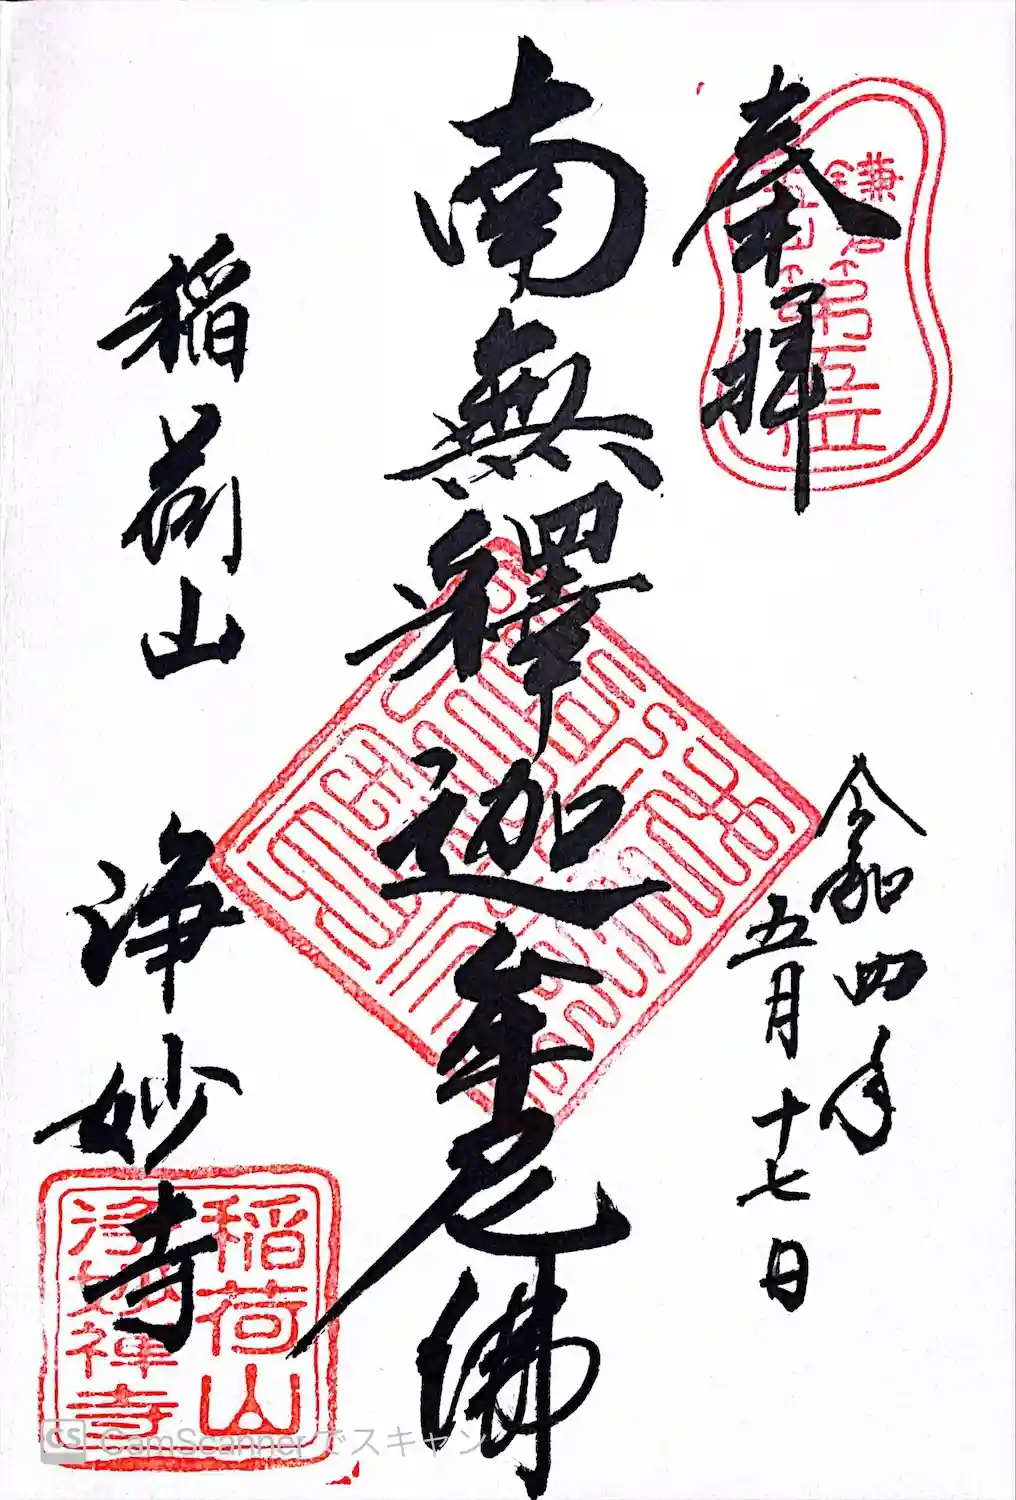 奉拝
鎌倉
五山第五位
令和四年
五月十七日
南無釋迦牟尼佛
稲荷山
浄妙寺
稲荷山
浄妙禅寺
CS CamScannerでスキャン